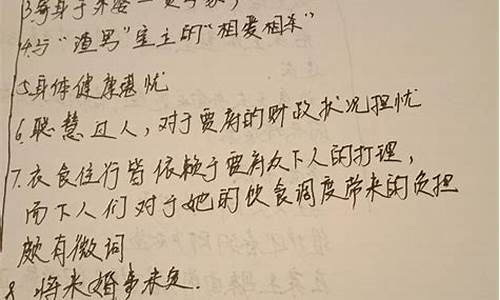 3.寄身于外婆一贾家,
4.与“渣男”宝玉的“相爱相杀”
5.身体健康堪忧
6.聪慧过人,对于贾府的财政状况担忧
7.衣食住行皆依赖于贾府及下人的打理,
而下人们对于她的饮食调度带来的负担
颇有微词
8.将来婚事未定.